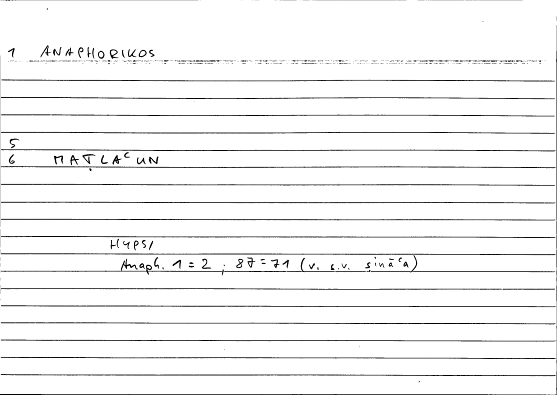 1 ANAPHORIKOS
5
6 MAṬLAᶜUN
HYPSI
Anaph. 1 = 2 ; 87 = 71 (v. s.v. ṣināᶜa)